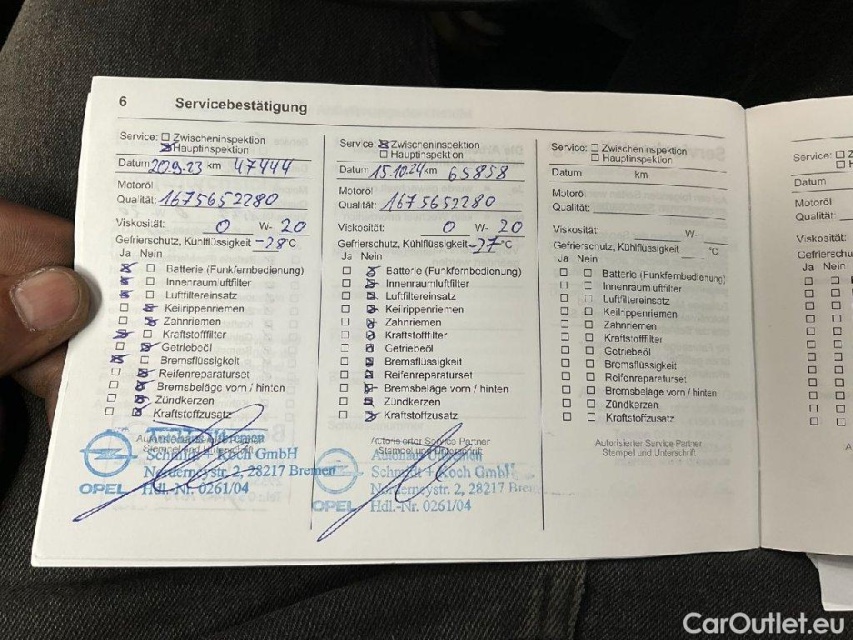 6 Servicebestätigung
Service: Zwischeninspektion
Hauptinspektion
Datum 20.9.23 km 47444
Motoröl
Qualität: 1675652280
Viskosität: 0 W- 20
Gefrierschutz, Kühlflüssigkeit -28°C
Ja Nein
Batterie (Funkfernbedienung)
Innenraumluftfilter
Luftfiltereinsatz
Keilrippenriemen
Zahnriemen
Kraftstofffilter
Getriebeöl
Bremsflüssigkeit
Reifenreparaturset
Bremsbeläge vorn / hinten
Zündkerzen
Kraftstoffzusatz
Stempel und Unterschrift
Schmidt + Koch GmbH
Norderneystr. 2, 28217 Bremen
Hdl.-Nr. 0261/04
OPEL
Service: Zwischeninspektion
Hauptinspektion
Datum 15.10.24 km 65858
Motoröl
Qualität: 1675652280
Viskosität: 0 W- 20
Gefrierschutz, Kühlflüssigkeit -27°C
Ja Nein
Batterie (Funkfernbedienung)
Innenraumluftfilter
Luftfiltereinsatz
Keilrippenriemen
Zahnriemen
Kraftstofffilter
Getriebeöl
Bremsflüssigkeit
Reifenreparaturset
Bremsbeläge vorn / hinten
Zündkerzen
Kraftstoffzusatz
Autorisierter Service Partner
Stempel und Unterschrift
Schmidt + Koch GmbH
Norderneystr. 2, 28217
Hdl.-Nr. 0261/04
OPEL
Service: Zwischeninspektion
Hauptinspektion
Datum km
Motoröl
Qualität:
Viskosität: W-
Gefrierschutz, Kühlflüssigkeit °C
Ja Nein
Batterie (Funkfernbedienung)
Innenraumluftfilter
Luftfiltereinsatz
Keilrippenriemen
Zahnriemen
Kraftstofffilter
Getriebeöl
Bremsflüssigkeit
Reifenreparaturset
Bremsbeläge vorn / hinten
Zündkerzen
Kraftstoffzusatz
Autorisierter Service Partner
Stempel und Unterschrift
Service:
Datum
Motoröl
Qualität:
Viskosität:
Ja Nein
CarOutlet.eu